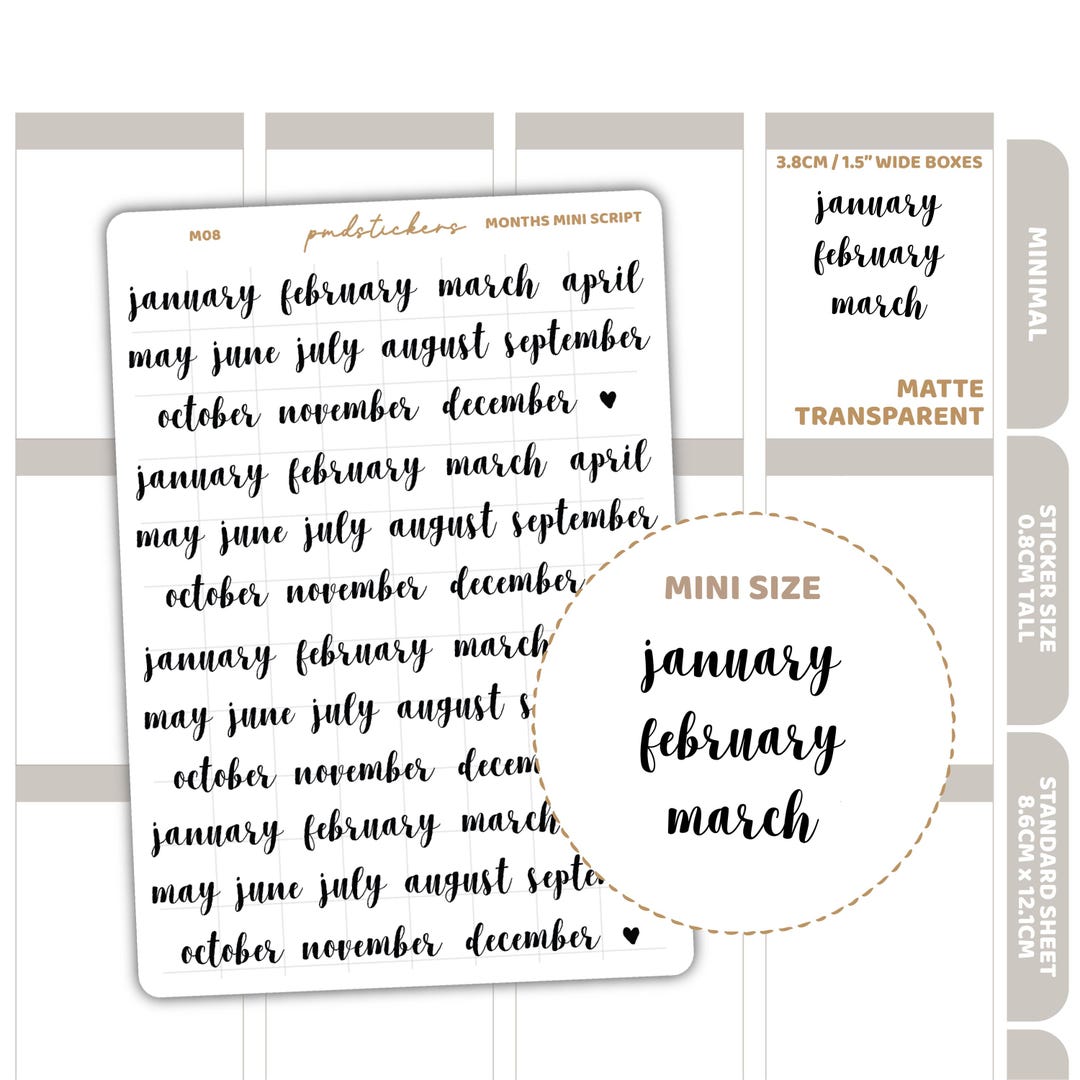 M08
pmdstickers
MONTHS MINI SCRIPT
january february march april
may june july august september
october november december ♥
january february march april
may june july august september
october november december
january february march
may june july august s
october november decem
january february march
may june july august septe
october november december ♥
3.8CM / 1.5" WIDE BOXES
january
february
march
MATTE
TRANSPARENT
MINI SIZE
january
february
march
MINIMAL
STICKER SIZE
0.8CM TALL
STANDARD SHEET
8.6CM x 12.1CM